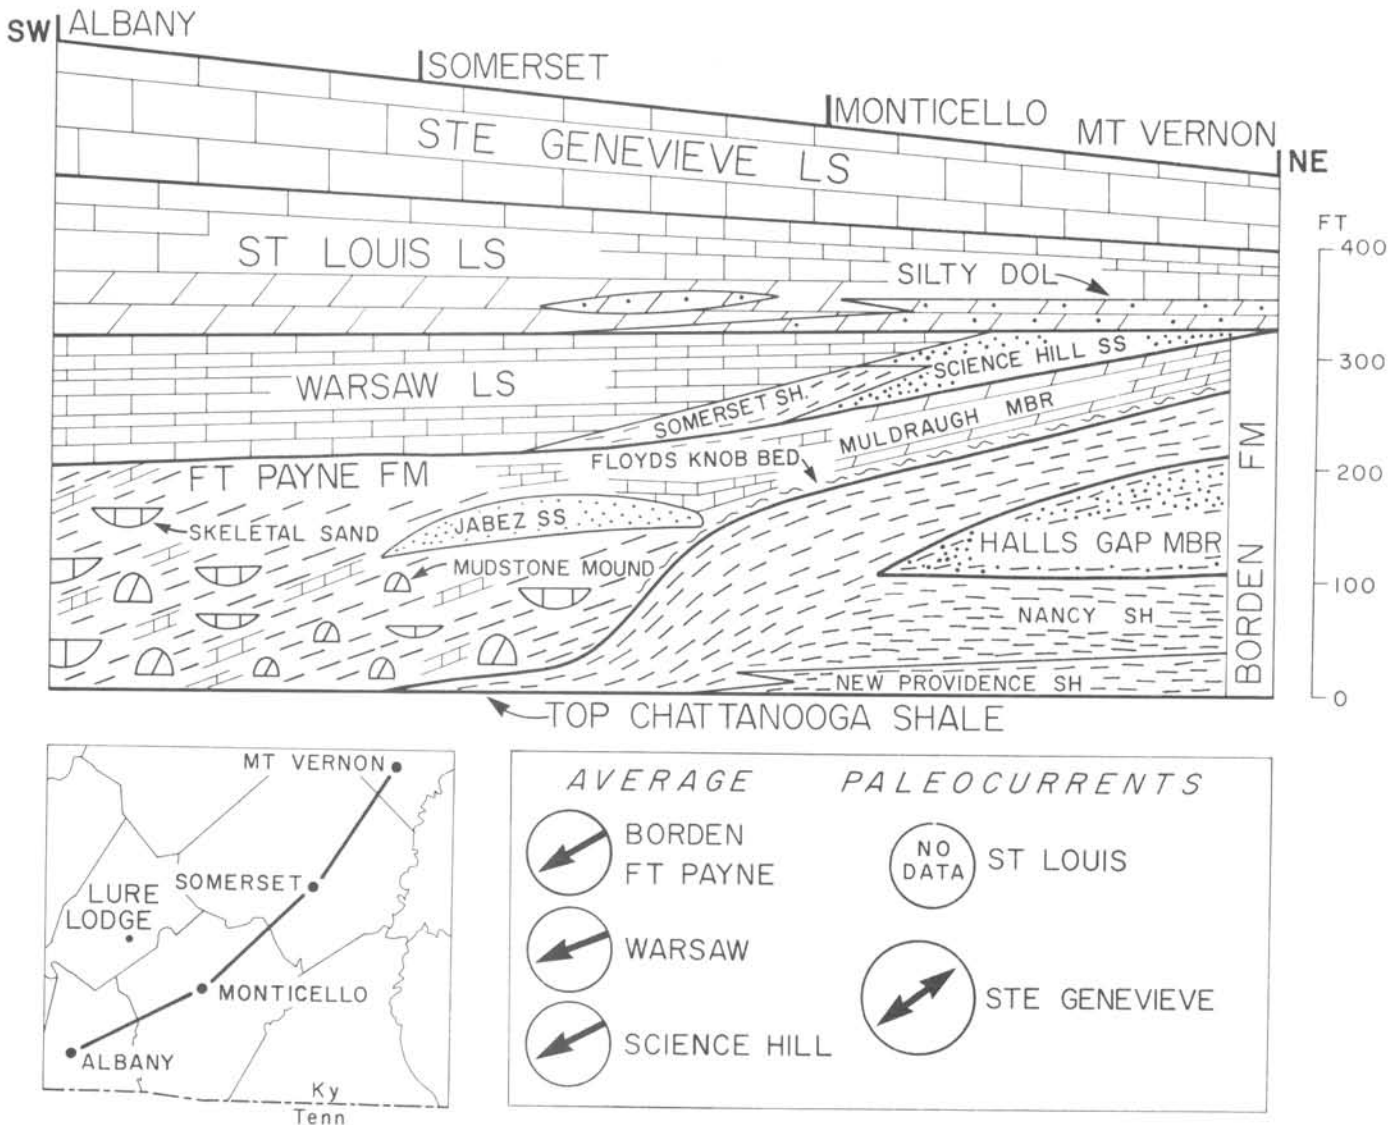 SW
ALBANY
SOMERSET
MONTICELLO
MT VERNON
NE
STE GENEVIEVE LS
ST LOUIS LS
SILTY DOL
WARSAW LS
SOMERSET SH.
SCIENCE HILL SS
MULDRAUGH MBR
FLOYDS KNOB BED
FT PAYNE FM
SKELETAL SAND
JABEZ SS
MUDSTONE MOUND
HALLS GAP MBR
NANCY SH
NEW PROVIDENCE SH
BORDEN FM
FT
400
300
200
100
0
TOP CHATTANOOGA SHALE
MT VERNON
SOMERSET
LURE
LODGE
MONTICELLO
ALBANY
Ky
Tenn
AVERAGE PALEOCURRENTS
BORDEN
FT PAYNE
WARSAW
SCIENCE HILL
NO
DATA
ST LOUIS
STE GENEVIEVE